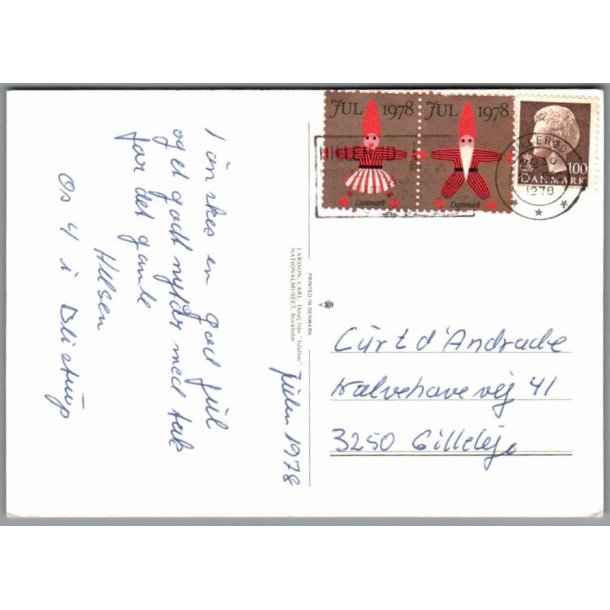 JUL 1978
JUL 1978
Danmark
Danmark
100
DANMARK
1978
I ønskes en god jul
og et godt nytår med tak
for det gamle
Hilsen
Os 4 i Blistrup
Julen 1978
LARSSON, CARL: Detalj från "Julafton"
NATIONALMUSEET, Stockholm
PRINTED IN DENMARK
Curt d'Andrade
Kalvehavevej 41
3250 Gilleleje